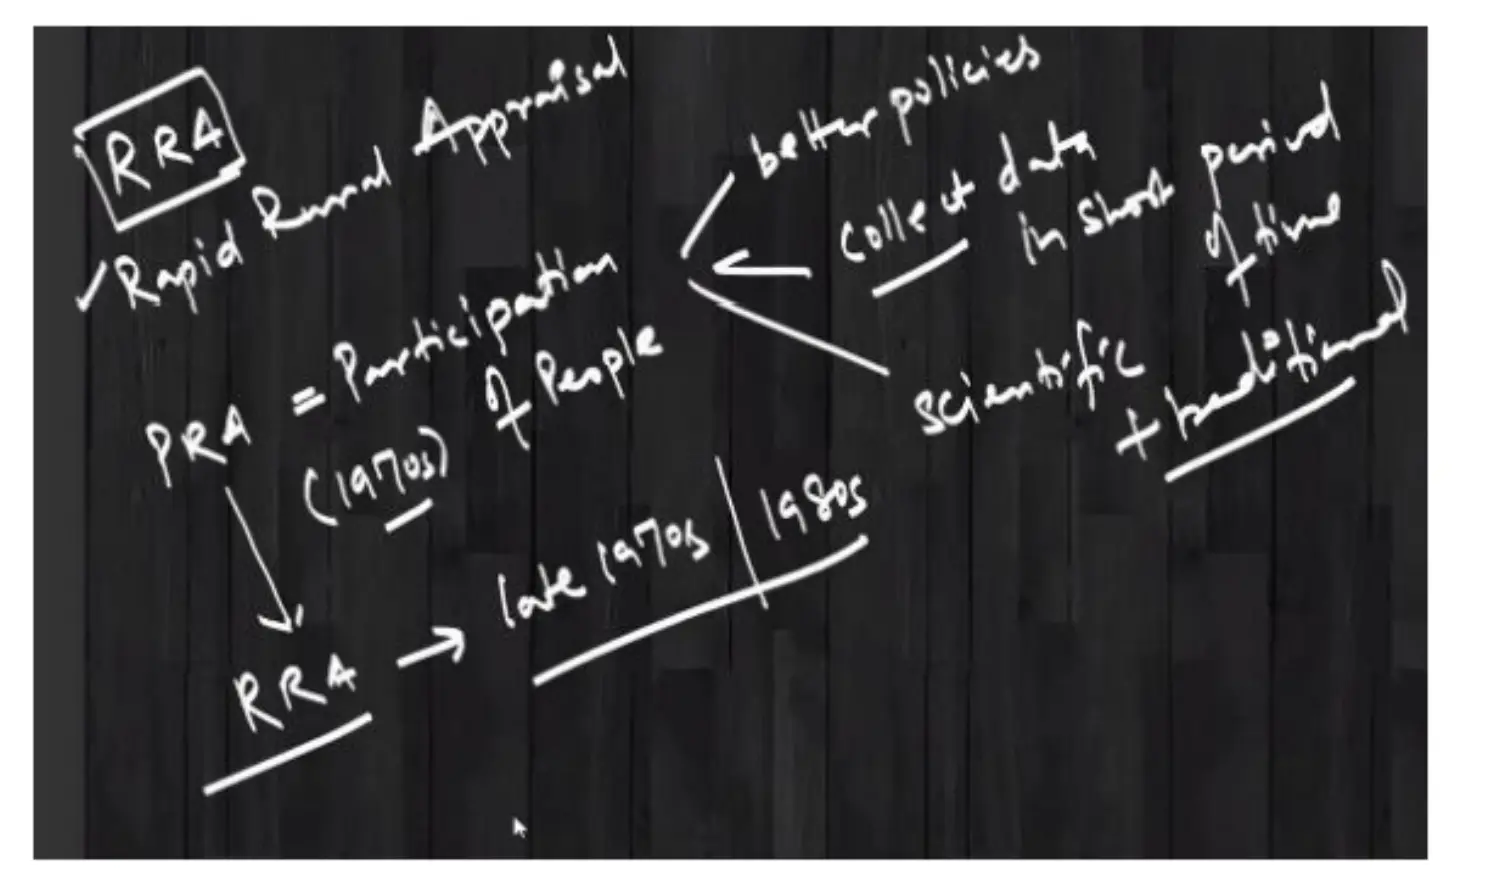 RRA
Rapid Rural Appraisal
better policies
collect data
in short period
of time
scientific
+ traditional
PRA = Participation
of People
(1970s)
RRA → late 1970s | 1980s